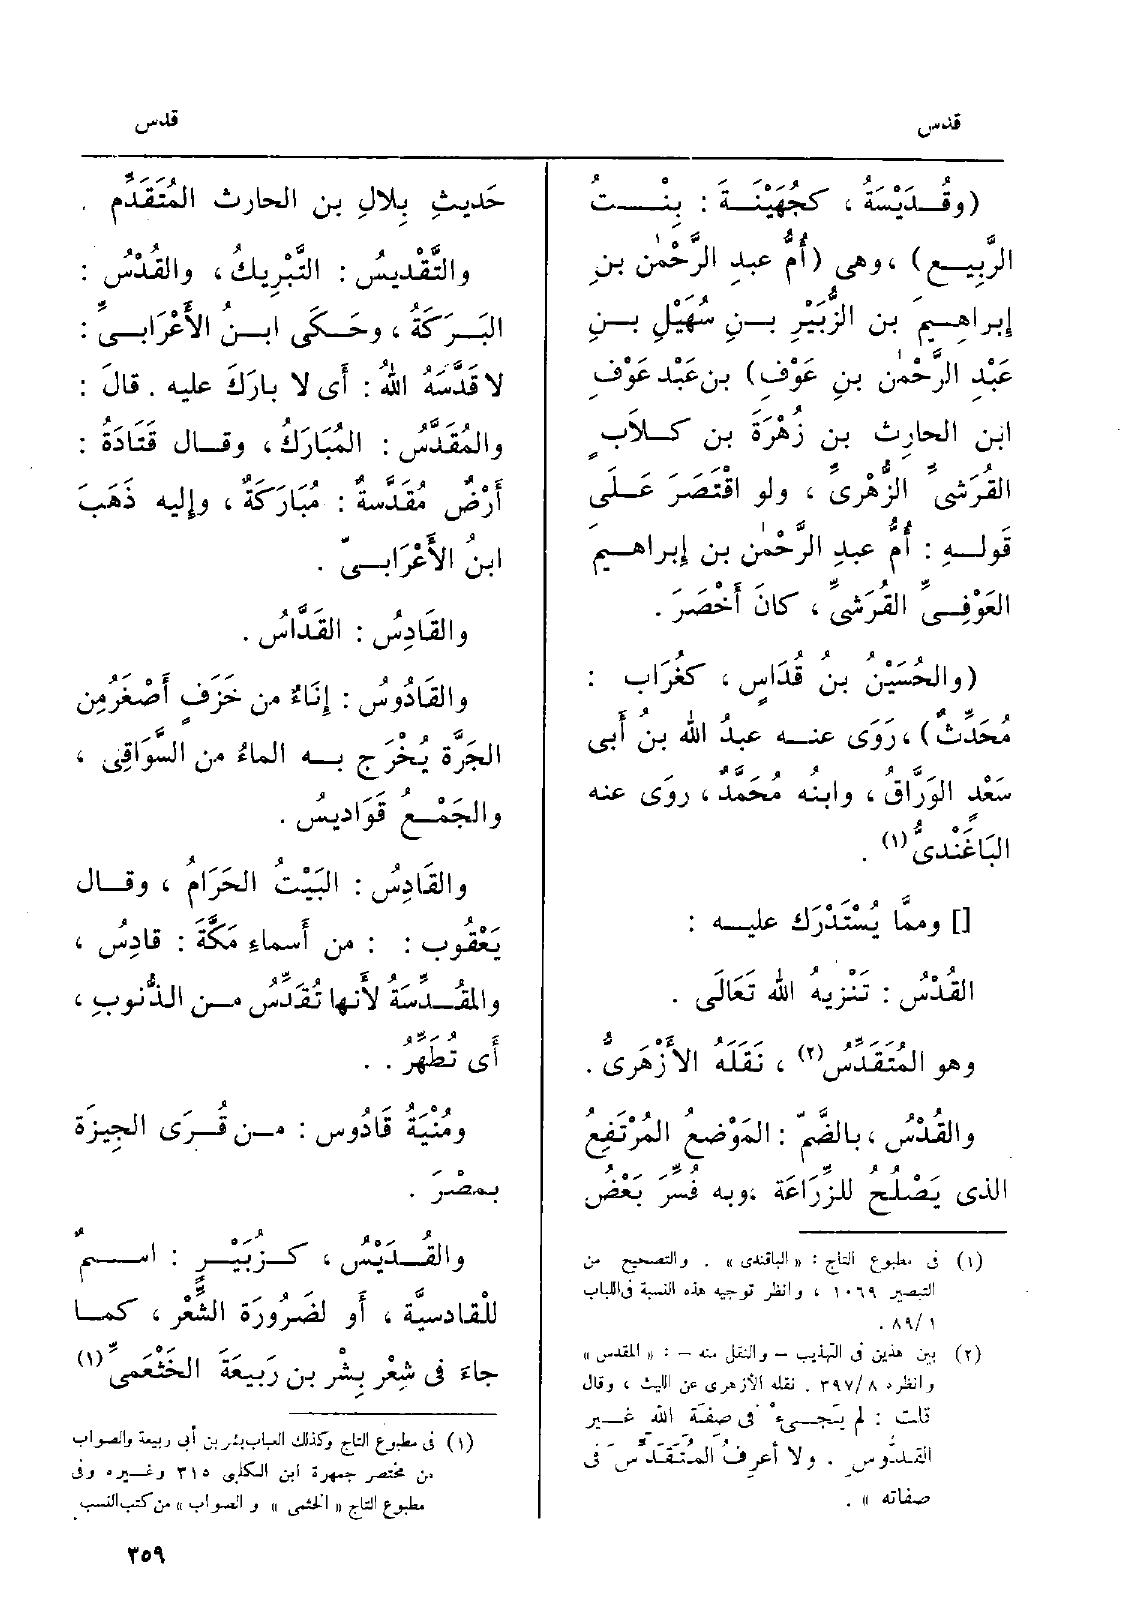 قدس
قدس
(وقُدَيْسَةُ ، كجُهَيْنَةَ : بِنْتُ
الرَّبِيعِ) ، وهى (أُمُّ عبدِ الرَّحْمٰن بنِ
إبراهِيمَ بن الزُّبَيْرِ بنِ سُهَيْلِ بنِ
عَبْدِ الرَّحْمٰن بنِ عَوْفِ) بن عَبْد عَوْفِ
ابن الحارِث بن زُهْرَةَ بن كلَابٍ
القُرَشىِّ الزُّهْرىِّ ، ولو اقْتَصَرَ عَلَى
قَولهِ : أُمُّ عبدِ الرَّحْمٰن بن إبراهيمَ
العَوْفِىِّ القُرَشىِّ ، كانَ أَخْصَرَ .
(والحُسَيْنُ بنُ قُدَاسٍ ، كغُرَابٍ :
مُحَدِّثٌ) ، رَوَى عنه عبدُ الله بنُ أَبى
سَعْدٍ الوَرَّاقُ ، وابنُه مُحَمَّدٌ ، روَى عنه
البَاغَنْدىُّ (١) .
[] وممّا يُسْتَدْرَك عليه :
القُدْسُ : تَنْزِيهُ الله تَعَالَى .
وهو المُتَقَدِّسُ (٢) ، نَقَلَهُ الأَزْهَرىُّ .
والقُدْسُ ، بالضَّمّ : المَوْضعُ المُرْتَفِعُ
الذى يَصْلُح للزِّرَاعَة ، وبه فُسِّرَ بَعْضُ
(١) فى مطبوع التاج : « الباقندى » . والتصحيح من
التبصير ١٠٦٩ ، وانظر توجيه هذه النسبة فى اللباب
٨٩/١ .
(٢) بين هذين فى التهذيب – والنقل منه – : « المقدس »
وانظره ٣٩٧/٨ . نقله الأزهرى عن الليث ، وقال
قلت : لم يَجىءْ فى صفة الله غير
القدّوسِ . ولا أعرفُ المُتَقَدِّسَ فى
صفاته » .
حَديثِ بِلالِ بن الحارث المُتَقَدِّم .
والتَّقْديسُ : التَّبْرِيكُ ، والقُدْسُ :
البَرَكَةُ ، وحَكَى ابنُ الأَعْرَابىِّ :
لا قَدَّسَهُ اللهُ : أَى لا بارَكَ عليه . قالَ :
والمُقَدَّسُ : المُبَارَكُ ، وقال قَتَادَةُ :
أَرْضٌ مُقَدَّسةٌ : مُبَارَكَةٌ ، وإليه ذَهَبَ
ابنُ الأَعْرَابىّ .
والقَادِسُ : القَدَّاسُ .
والقَادُوسُ : إنَاءٌ من خَزَفٍ أَصْغَرُ مِن
الجَرَّة يُخْرَج به الماءُ من السَّوَاقِى ،
والجَمْعُ قَوَاديسُ .
والقَادِسُ : البَيْتُ الحَرَامُ ، وقال
يَعْقُوب : : من أَسماءِ مَكَّةَ : قادِسُ ،
والمقُدِّسَةُ لأَنها تُقَدِّسُ من الذُّنوبِ ،
أَى تُطَهِّرُ . .
ومُنْيَةُ قَادُوس : من قُرَى الجِيزَة
بمصْرَ .
والقُدَيْسُ ، كزُبَيْرٍ : اسمٌ
للْقادسيَّة ، أَو لضَرُورَة الشِّعْر ، كما
جاءَ فى شِعْر بِشْر بن رَبيعَةَ الخَثْعَمىِّ (١)
(١) فى مطبوع التاج وكذلك العباب بشر بن أبى ربيعة والصواب
من مختصر جمهرة ابن الكلبى ٣١٥ وغيره وفى
مطبوع التاج « الخثمى » و الصواب » من كتب النسب .
٣٥٩